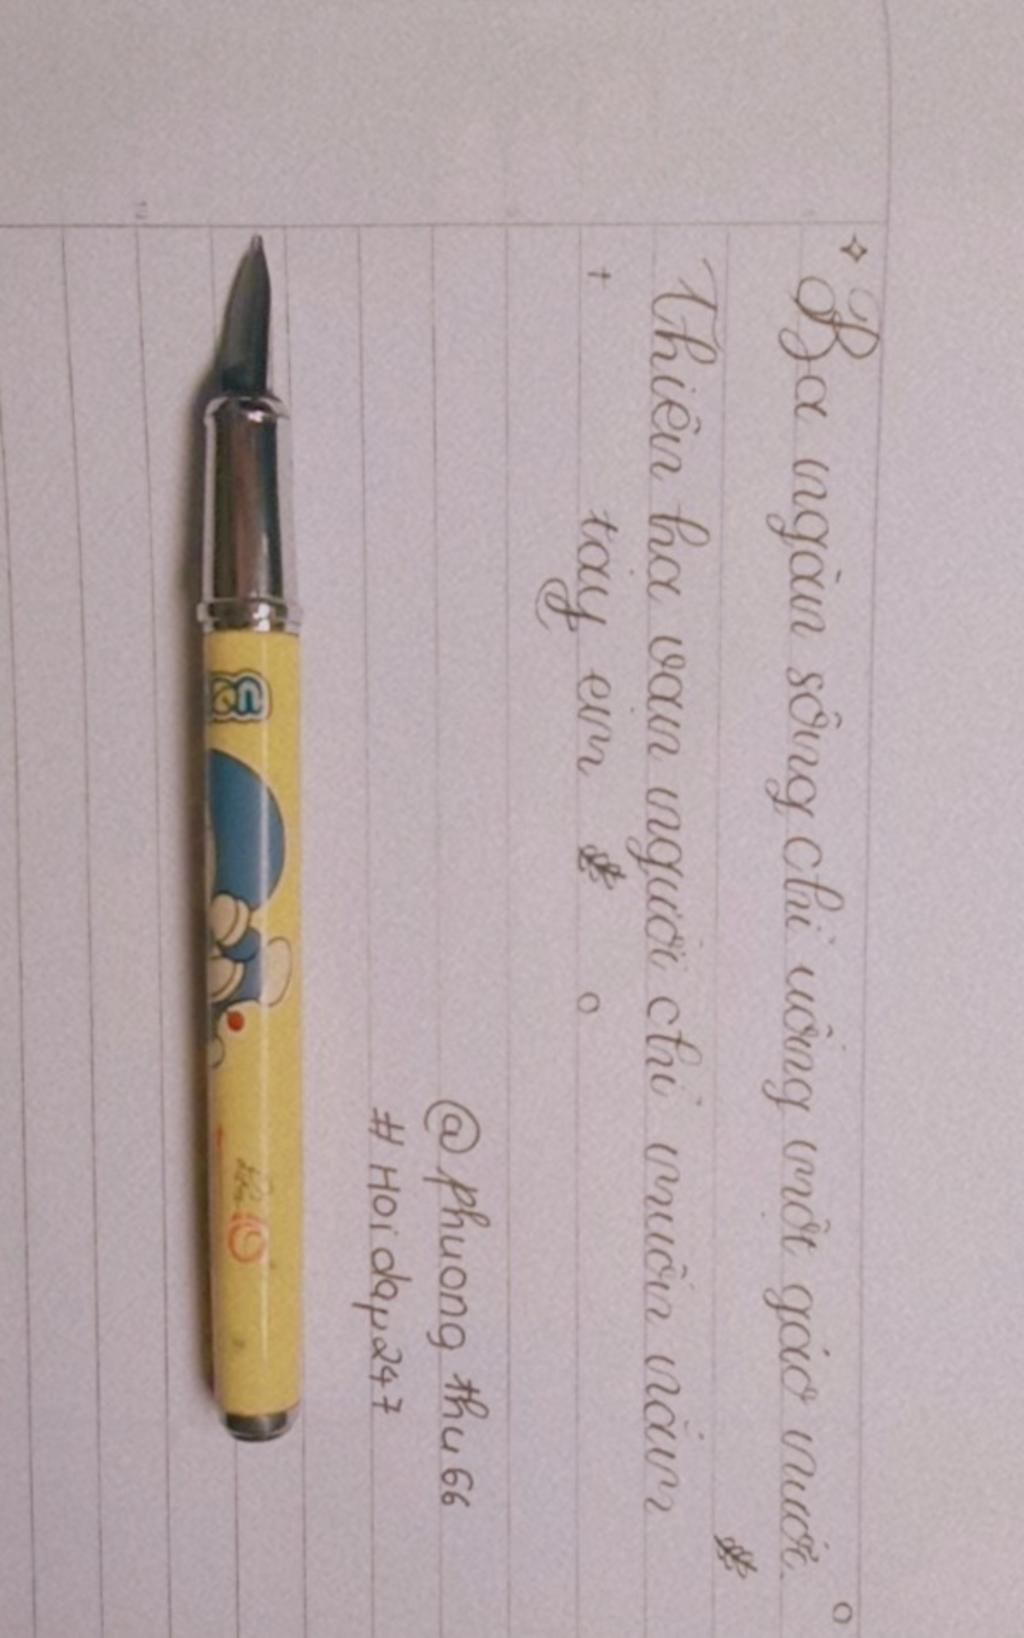 Ba ngàn sông chỉ uống một gáo nước.
Thiên hạ vạn người chỉ muốn nắm
tay em
@phuong thu66
#Hoidap247